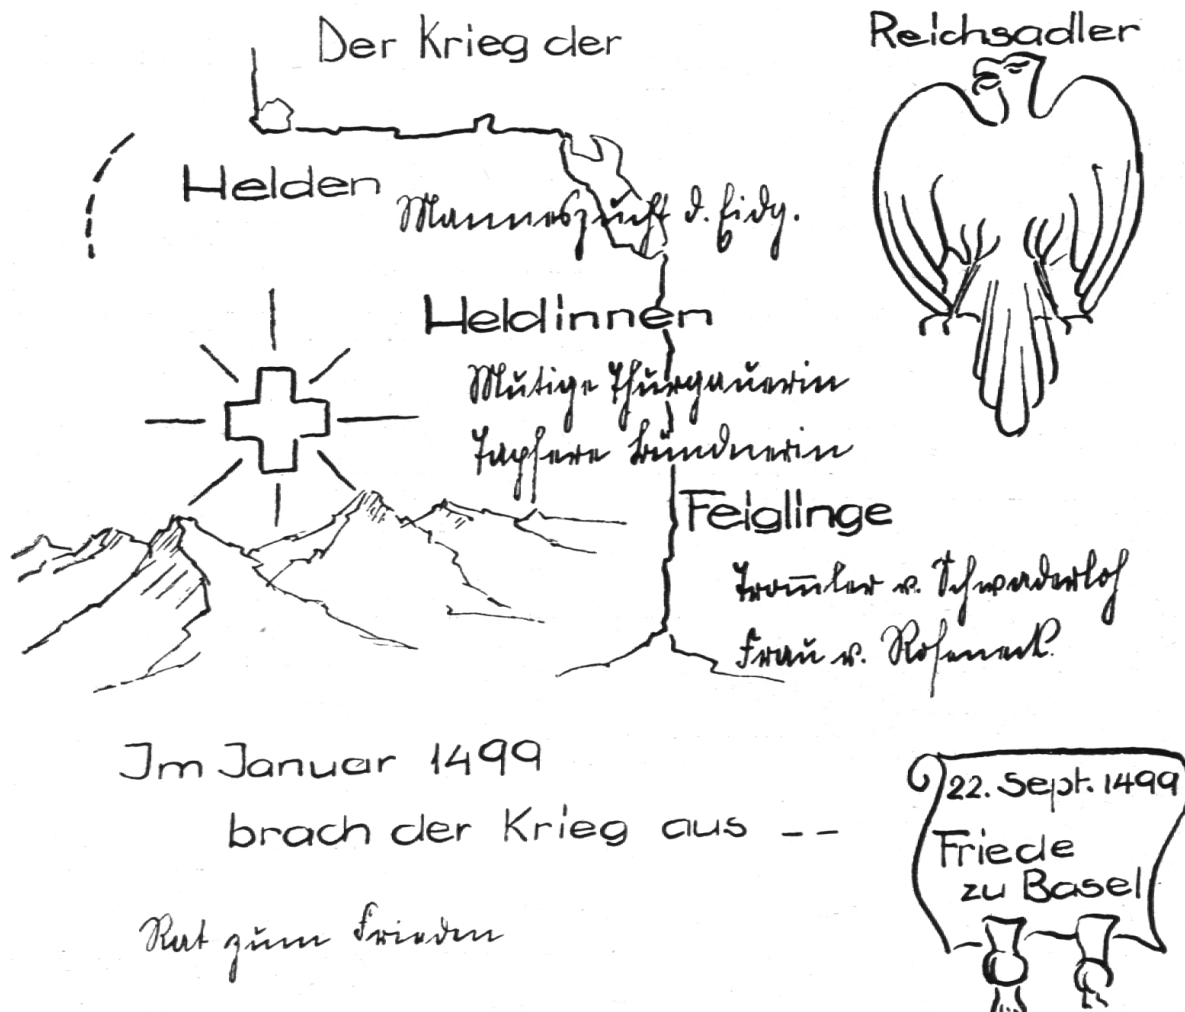 Der Krieg der
Reichsadler
Helden
Manneszucht d. Eidg.
Heldinnen
Mutige Thurgauerin
Tapfere Bündnerin
Feiglinge
Trom̄ler v. Schwaderloh
Frau v. Roseneck
Im Januar 1499
brach der Krieg aus --
22. Sept. 1499
Friede
zu Basel
Rat zum Frieden